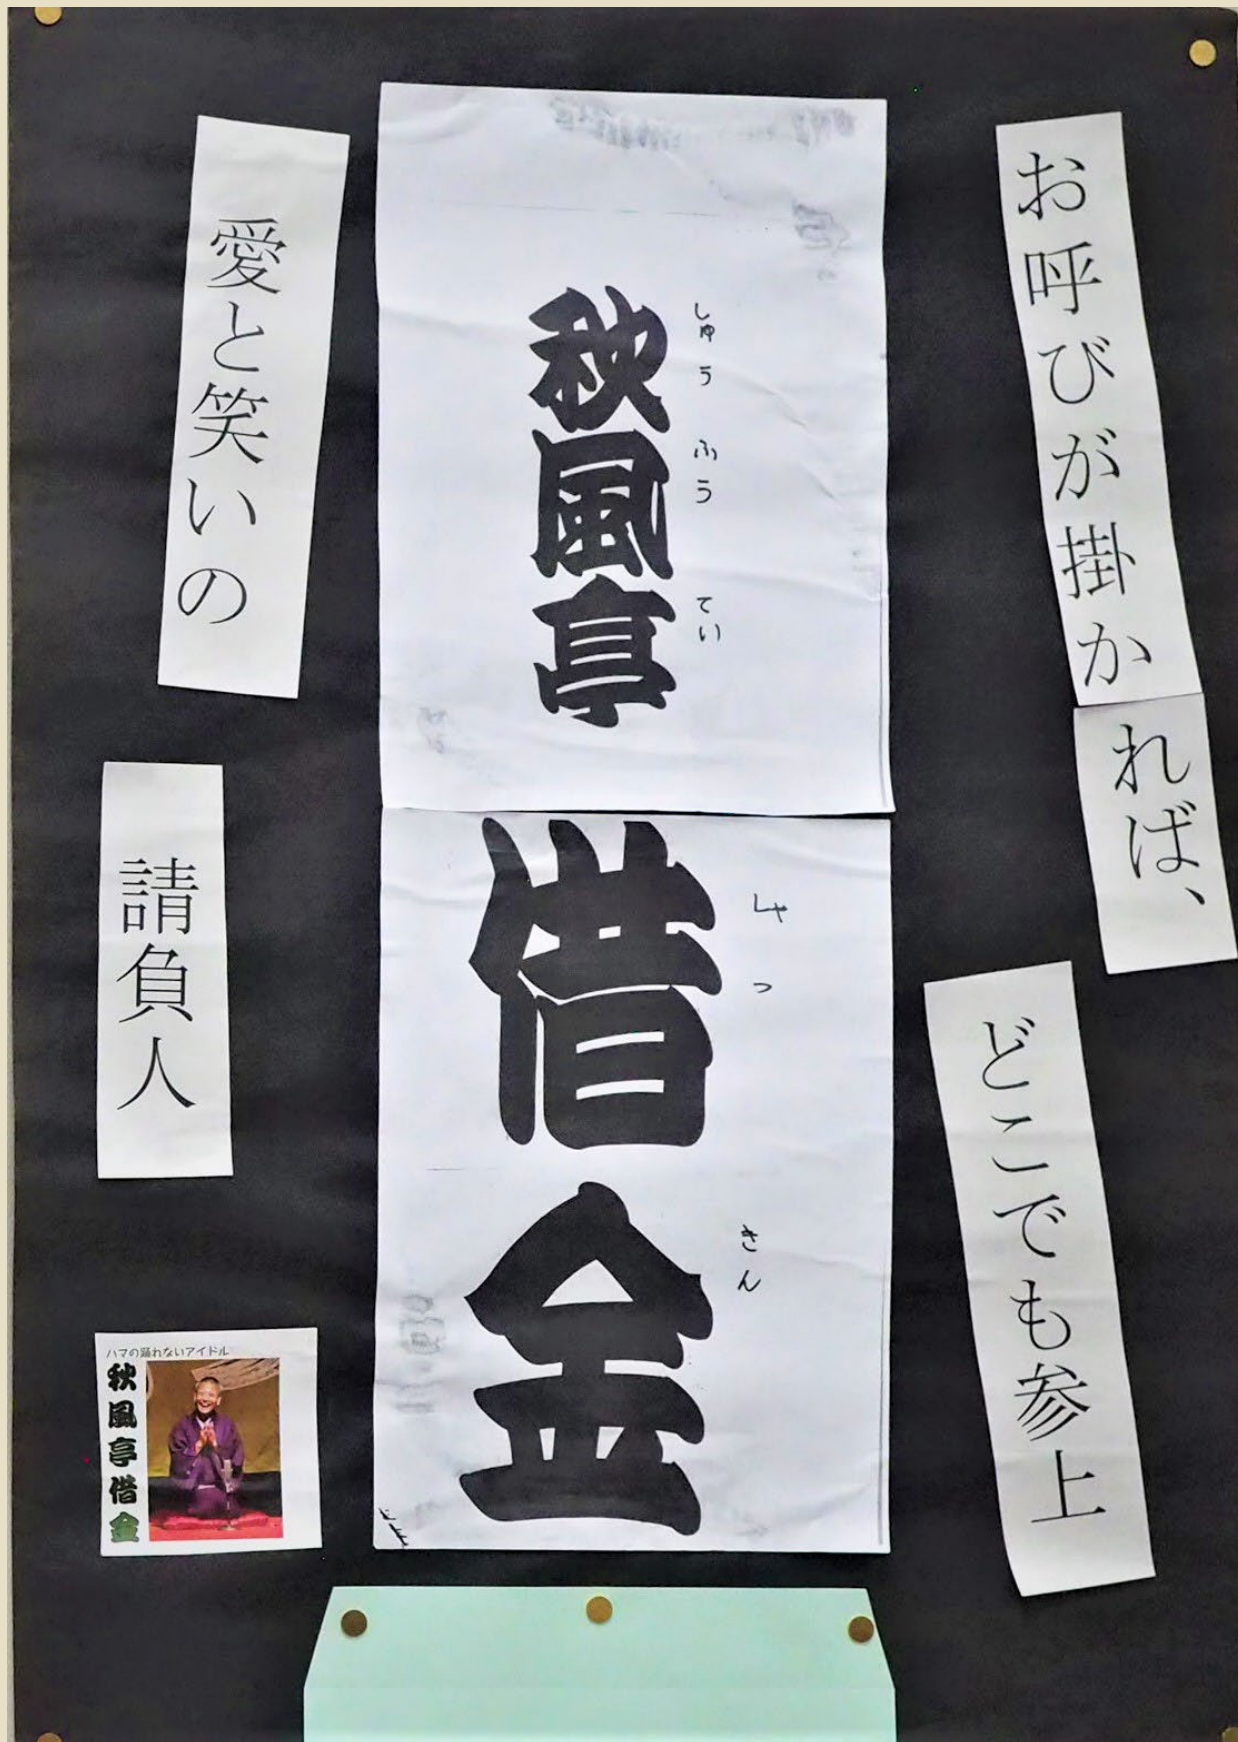 お呼びが掛かれば、
どこでも参上
秋風亭
しゅうふうてい
借金
しゃっきん
愛と笑いの
請負人
ハマの踊れないアイドル
秋風亭借金